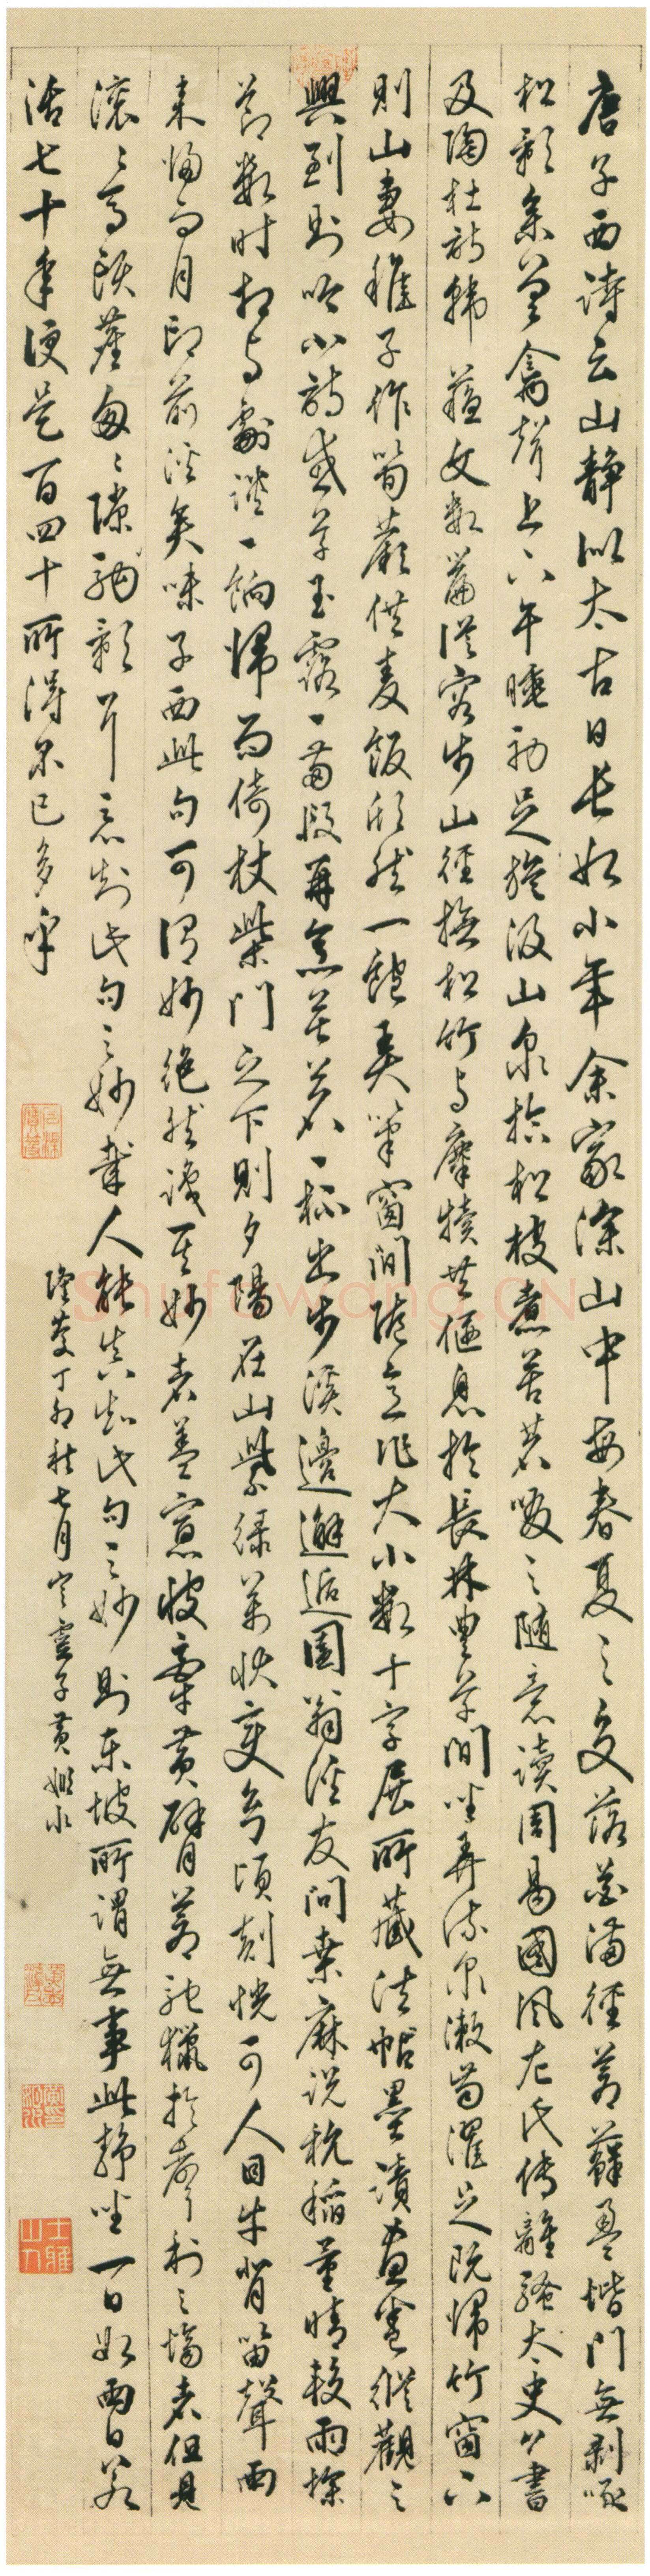 唐子西詩云山靜似太古日長如小年余家深山中每春夏之交落花滿徑蒼蘚盈堦門無剥啄
松影參差禽聲上下午睡初足旋汲山泉拾松枝煮苦茗啜之隨意讀周易國風左氏傳離騷太史公書
及陶杜詩韓蘇文數篇從容步山徑撫松竹与麋犢共偃息於長林豐草間坐弄流泉漱齒濯足既歸竹窗下
則山妻稚子作筍蕨供麦飯欣然一飽弄筆窗間隨意作大小數十字展所藏法帖墨蹟畫卷縱觀之
興到則吟小詩或草玉露一兩段再烹苦茗一杯出步溪邊邂逅園翁溪友問桑麻說秔稻量晴較雨探
節數时相与劇談一餉歸而倚杖柴門之下則夕陽在山紫綠萬狀變幻頃刻恍可人目牛背笛聲兩
来歸而月印前溪矣味子西此句可謂妙絕然識其妙者盖寡彼牽黃臂蒼馳獵於聲利之塲者但見
滚々馬頭塵匆々隙駒影耳烏知此句之妙哉人能真知此句之妙則東坡所謂無事此靜坐一日如兩日若
活七十年便是百四十所得不已多乎
隆慶丁卯秋七月 黃姬水
士雅山人
Shufawang.CN